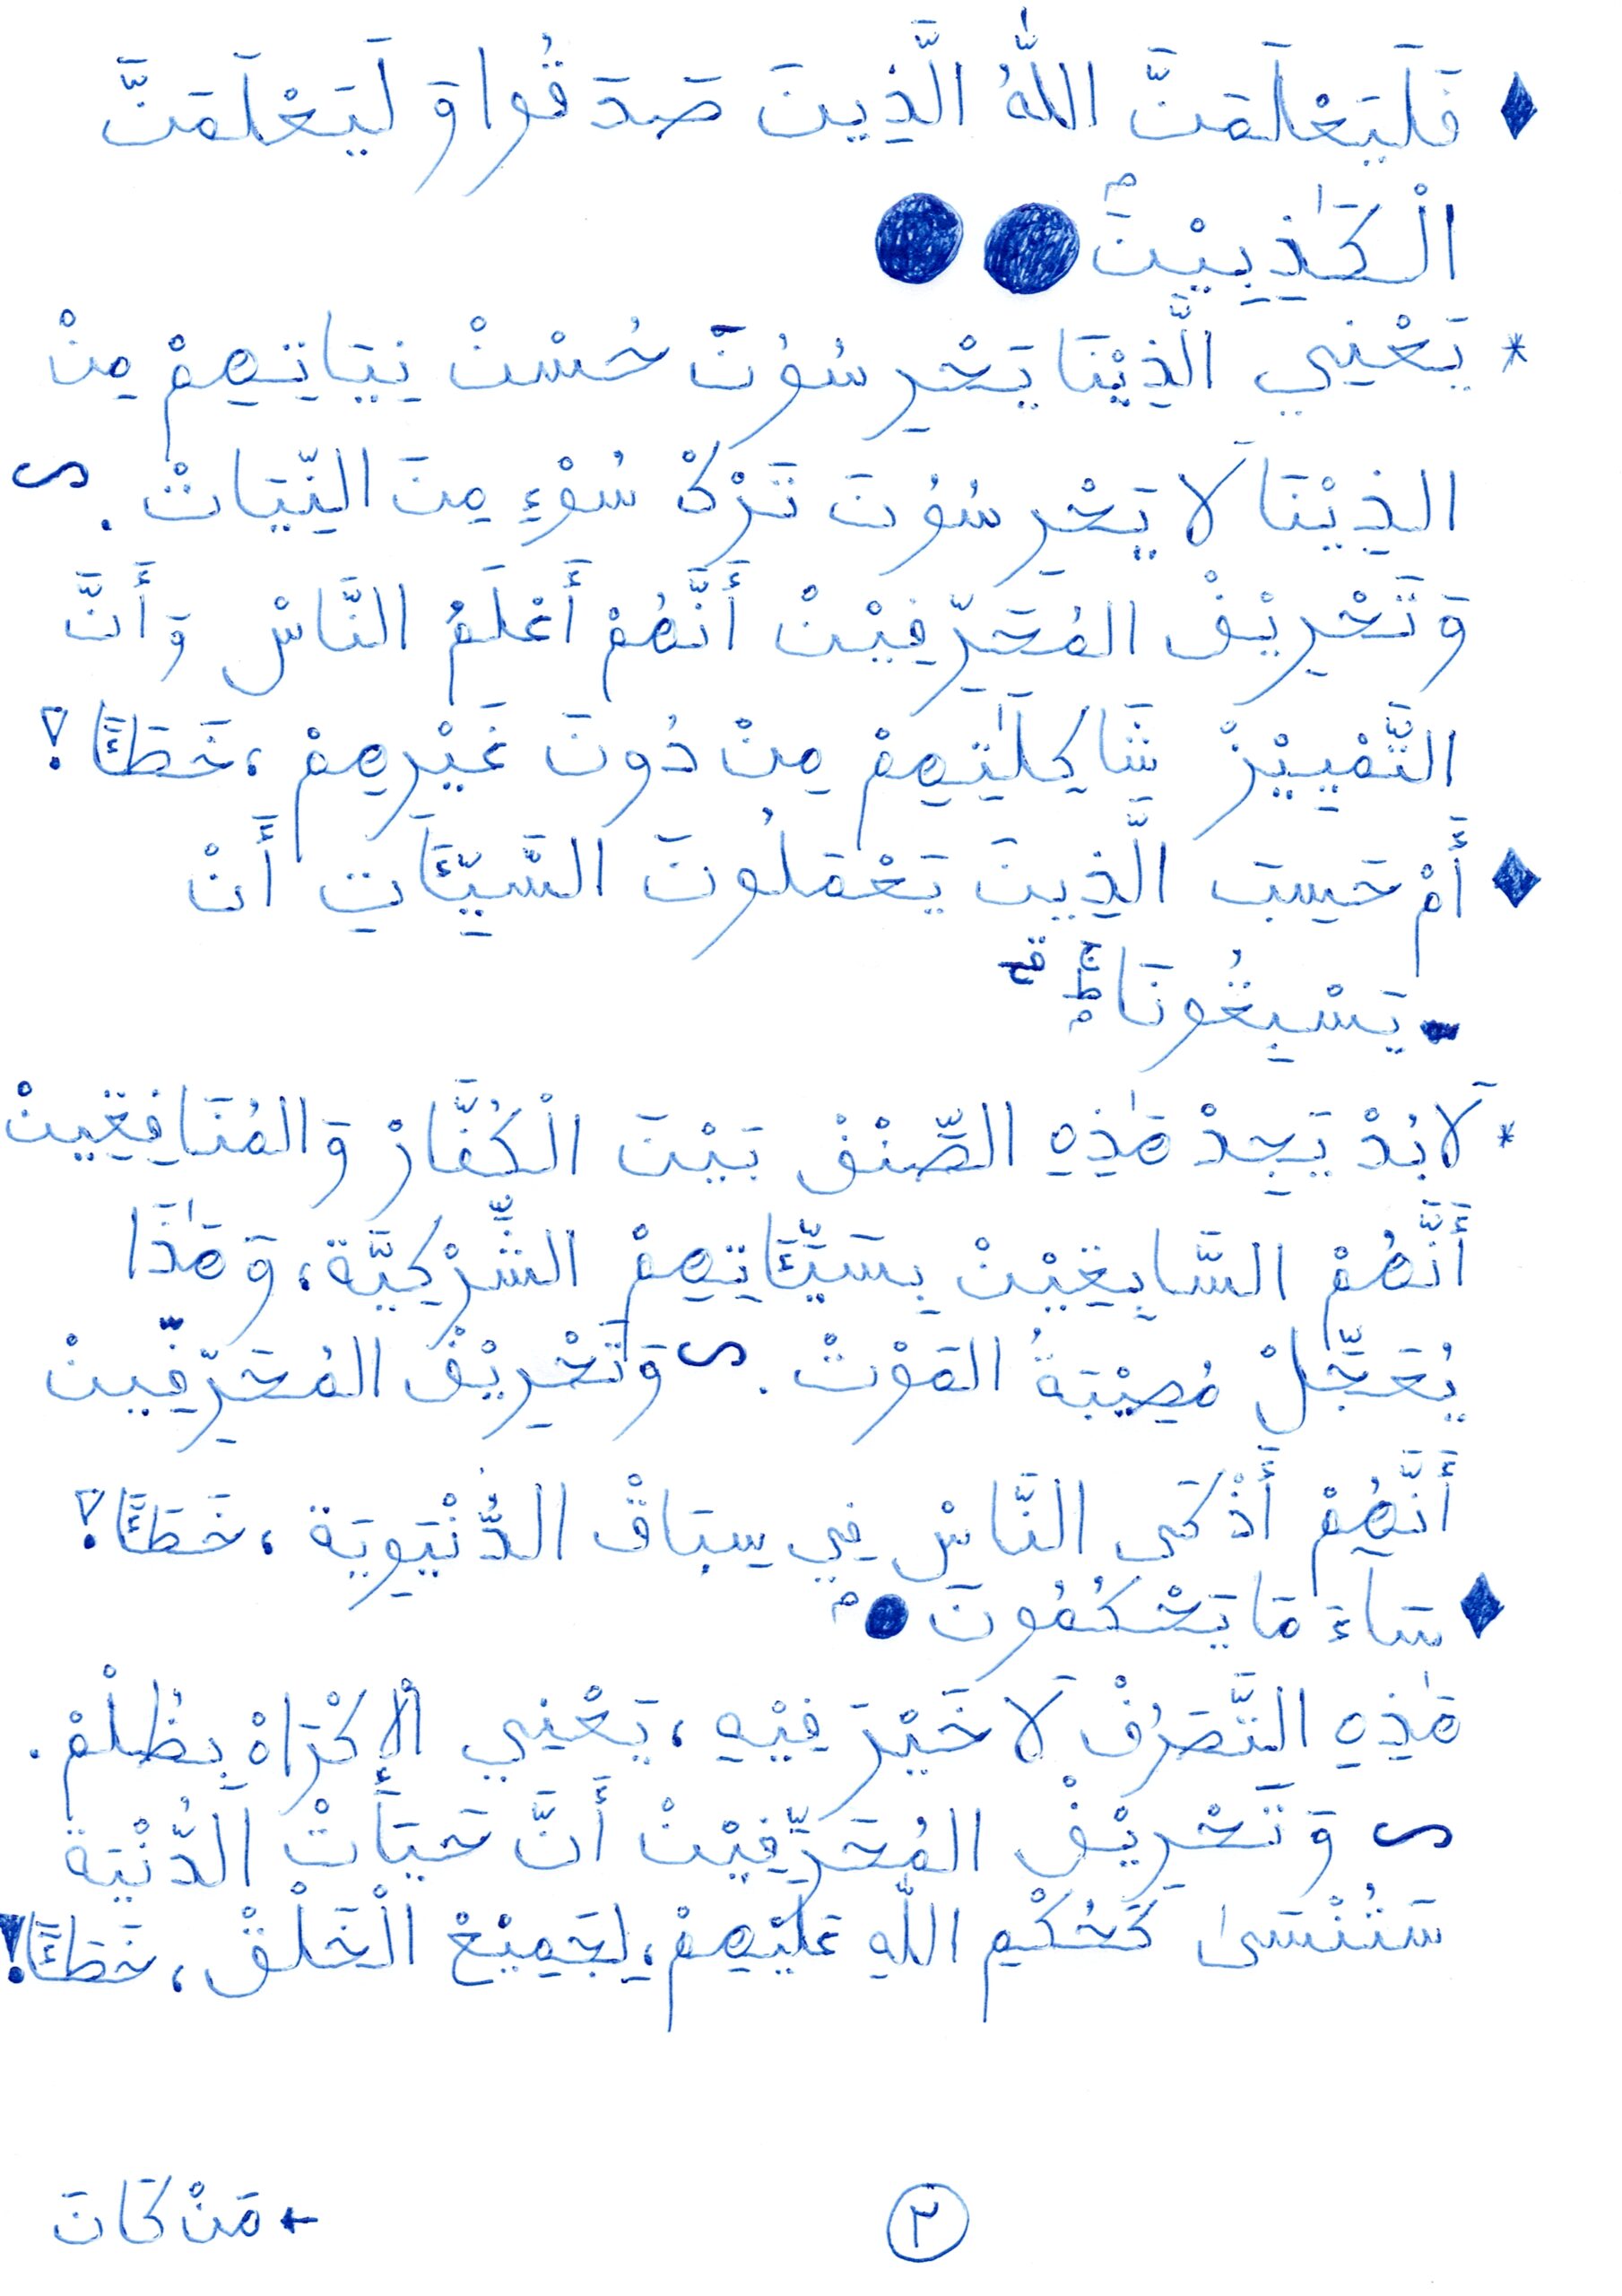 ♦ فَلَيَعْلَمَنَّ اللّٰهُ الَّذِينَ صَدَقُوا وَ لَيَعْلَمَنَّ
الْكَـٰذِبِيْنَ ● ●
* يَعْنِي الَّذِيْنَا يَحْرِسُوُنَ حُسْنْ نِيَاتِهِمْ مِنْ
الذِيْنَا لَا يَحْرِسُوُنَ تَرْكْ سُوْءِ مِنَ النِّيَاتْ.
وَتَحْرِيْفْ المُحَرِّفِيْنْ أَنَّهُمْ أَعْلَمُ النَّاسْ وَأَنَّ
التَّمْيِيْزْ شَاكِلَٰتِهِمْ مِنْ دُونَ غَيْرِهِمْ، خَطَئًا؟
♦ أَمْ حَسِبَ الَّذِينَ يَعْمَلُونَ السَّيِّـَٔاتِ أَنْ
يَسْبِقُونَا ۚ ط قج
* لَابُدْ يَجِدْ هَٰذِهِ الصِّنْفْ بَيْنَ الْكُفَّارْ وَالمُنَافِقِينْ
أَنَّهُمْ السَّابِقِيْنْ بِسَيِّئَاتِهِمْ الشِّرْكِيَّة، وَهَٰذَا
يُعَجِّلْ مُصِيْبَةُ المَوْتْ. وَتَحْرِيْفْ المُحَرِّفِّينْ
أَنَّهُمْ أَذْكَى النَّاسْ فِي سِبَاقْ الدُّنْيَوِيَة، خَطَئًا؟
♦ سَآءَ مَا يَحْكُمُونَ ●
هَٰذِهِ التَّصَرُفْ لَا خَيْرَ فِيْهِ، يَعْنِي الْإكْرَاهْ بِظُلْمْ.
وَتَحْرِيْفْ المُحَرِّفِيْنْ أَنَّ حَيَأَتْ الَدُّنْيَة
سَتُنْسَىٰ كَحُكْمِ اللّٰهِ عَلَيْهِمْ، لِجَمِيْعْ الْخَلْقْ، خَطَئًا!
٣
← مَنْ كَانَ